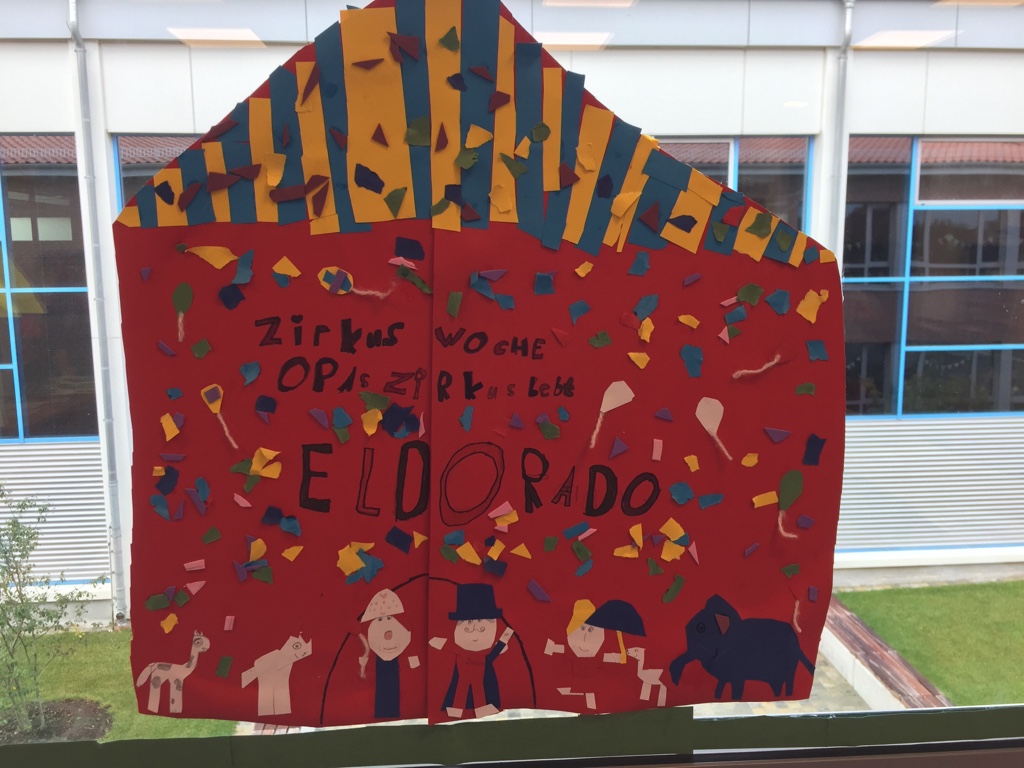 Zirkus WOCHE
OPAs ZIRkus lebt
ELDORADO